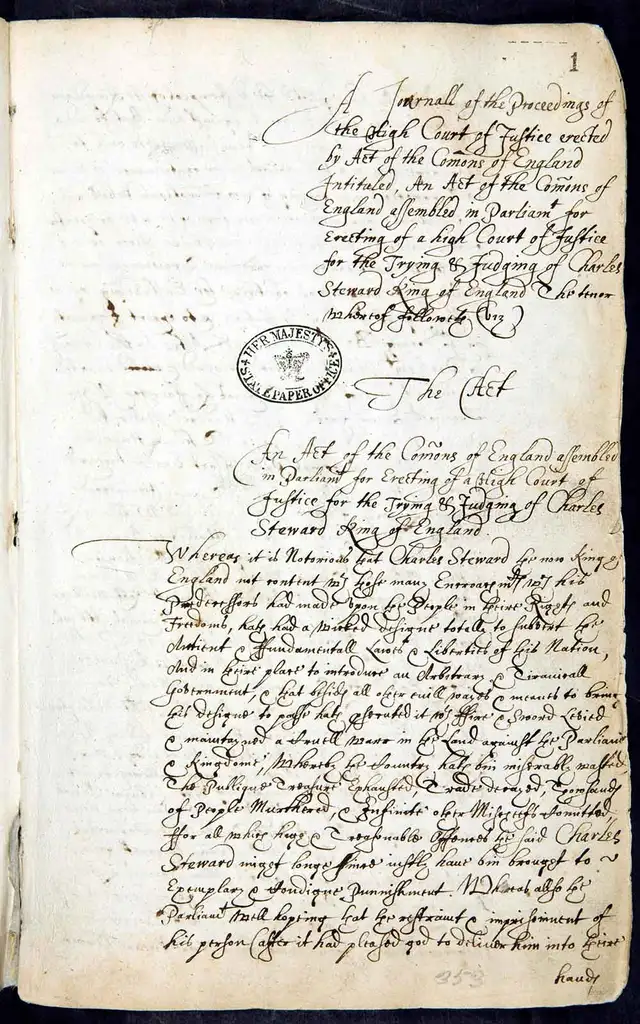 1
A Journall of the Proceedings of
the High Court of Justice erected
by Act of the Com̄ons of England
Intituled, An Act of the Com̄ons of
England assembled in Parliamt for
Erecting of a high Court of Justice
for the Trying & Judging of Charles
Steward King of England The tenor
Whereof followeth (Viz)
HER MAJESTY'S
STATE PAPER OFFICE
The Act
An Act of the Com̄ons of England assembled
in Parliamt for Erecting of a High Court of
Justice for the Trying & Judging of Charles
Steward King of England
Whereas it is Notorious that Charles Steward the now King of
England not content wth those many Encroachmts wch his
Predecessors had made upon the People in theire Rights and
Freedoms, hath had a Wicked designe totally to Subvert the
Antient & Fundamentall Lawes & Liberties of this Nation,
And in theire place to introduce an Arbitrary & Tiranicall
Government, & that besides all other evill wayes & meanes to bring
this designe to passe hath prosecuted it wth ffire & Sword Levied
& maintayned a Cruell Warr in the Land against the Parliamt
& Kingdome, Whereby the Country hath bin miserably wasted
The Publique Treasure Exhausted, Trade decayed, Thowsands
of People Murthered, & Infinite other Mischeifs Comitted,
ffor all which high & Treasonable Offences the said Charles
Steward might longe since iustly have bin brought to
Exemplary & Condigne Punnishment. Whereas allso the
Parliamt Well hoping that the restraint & imprisoinment of
his person (after it had pleased god to deliver him into theire
hands
353